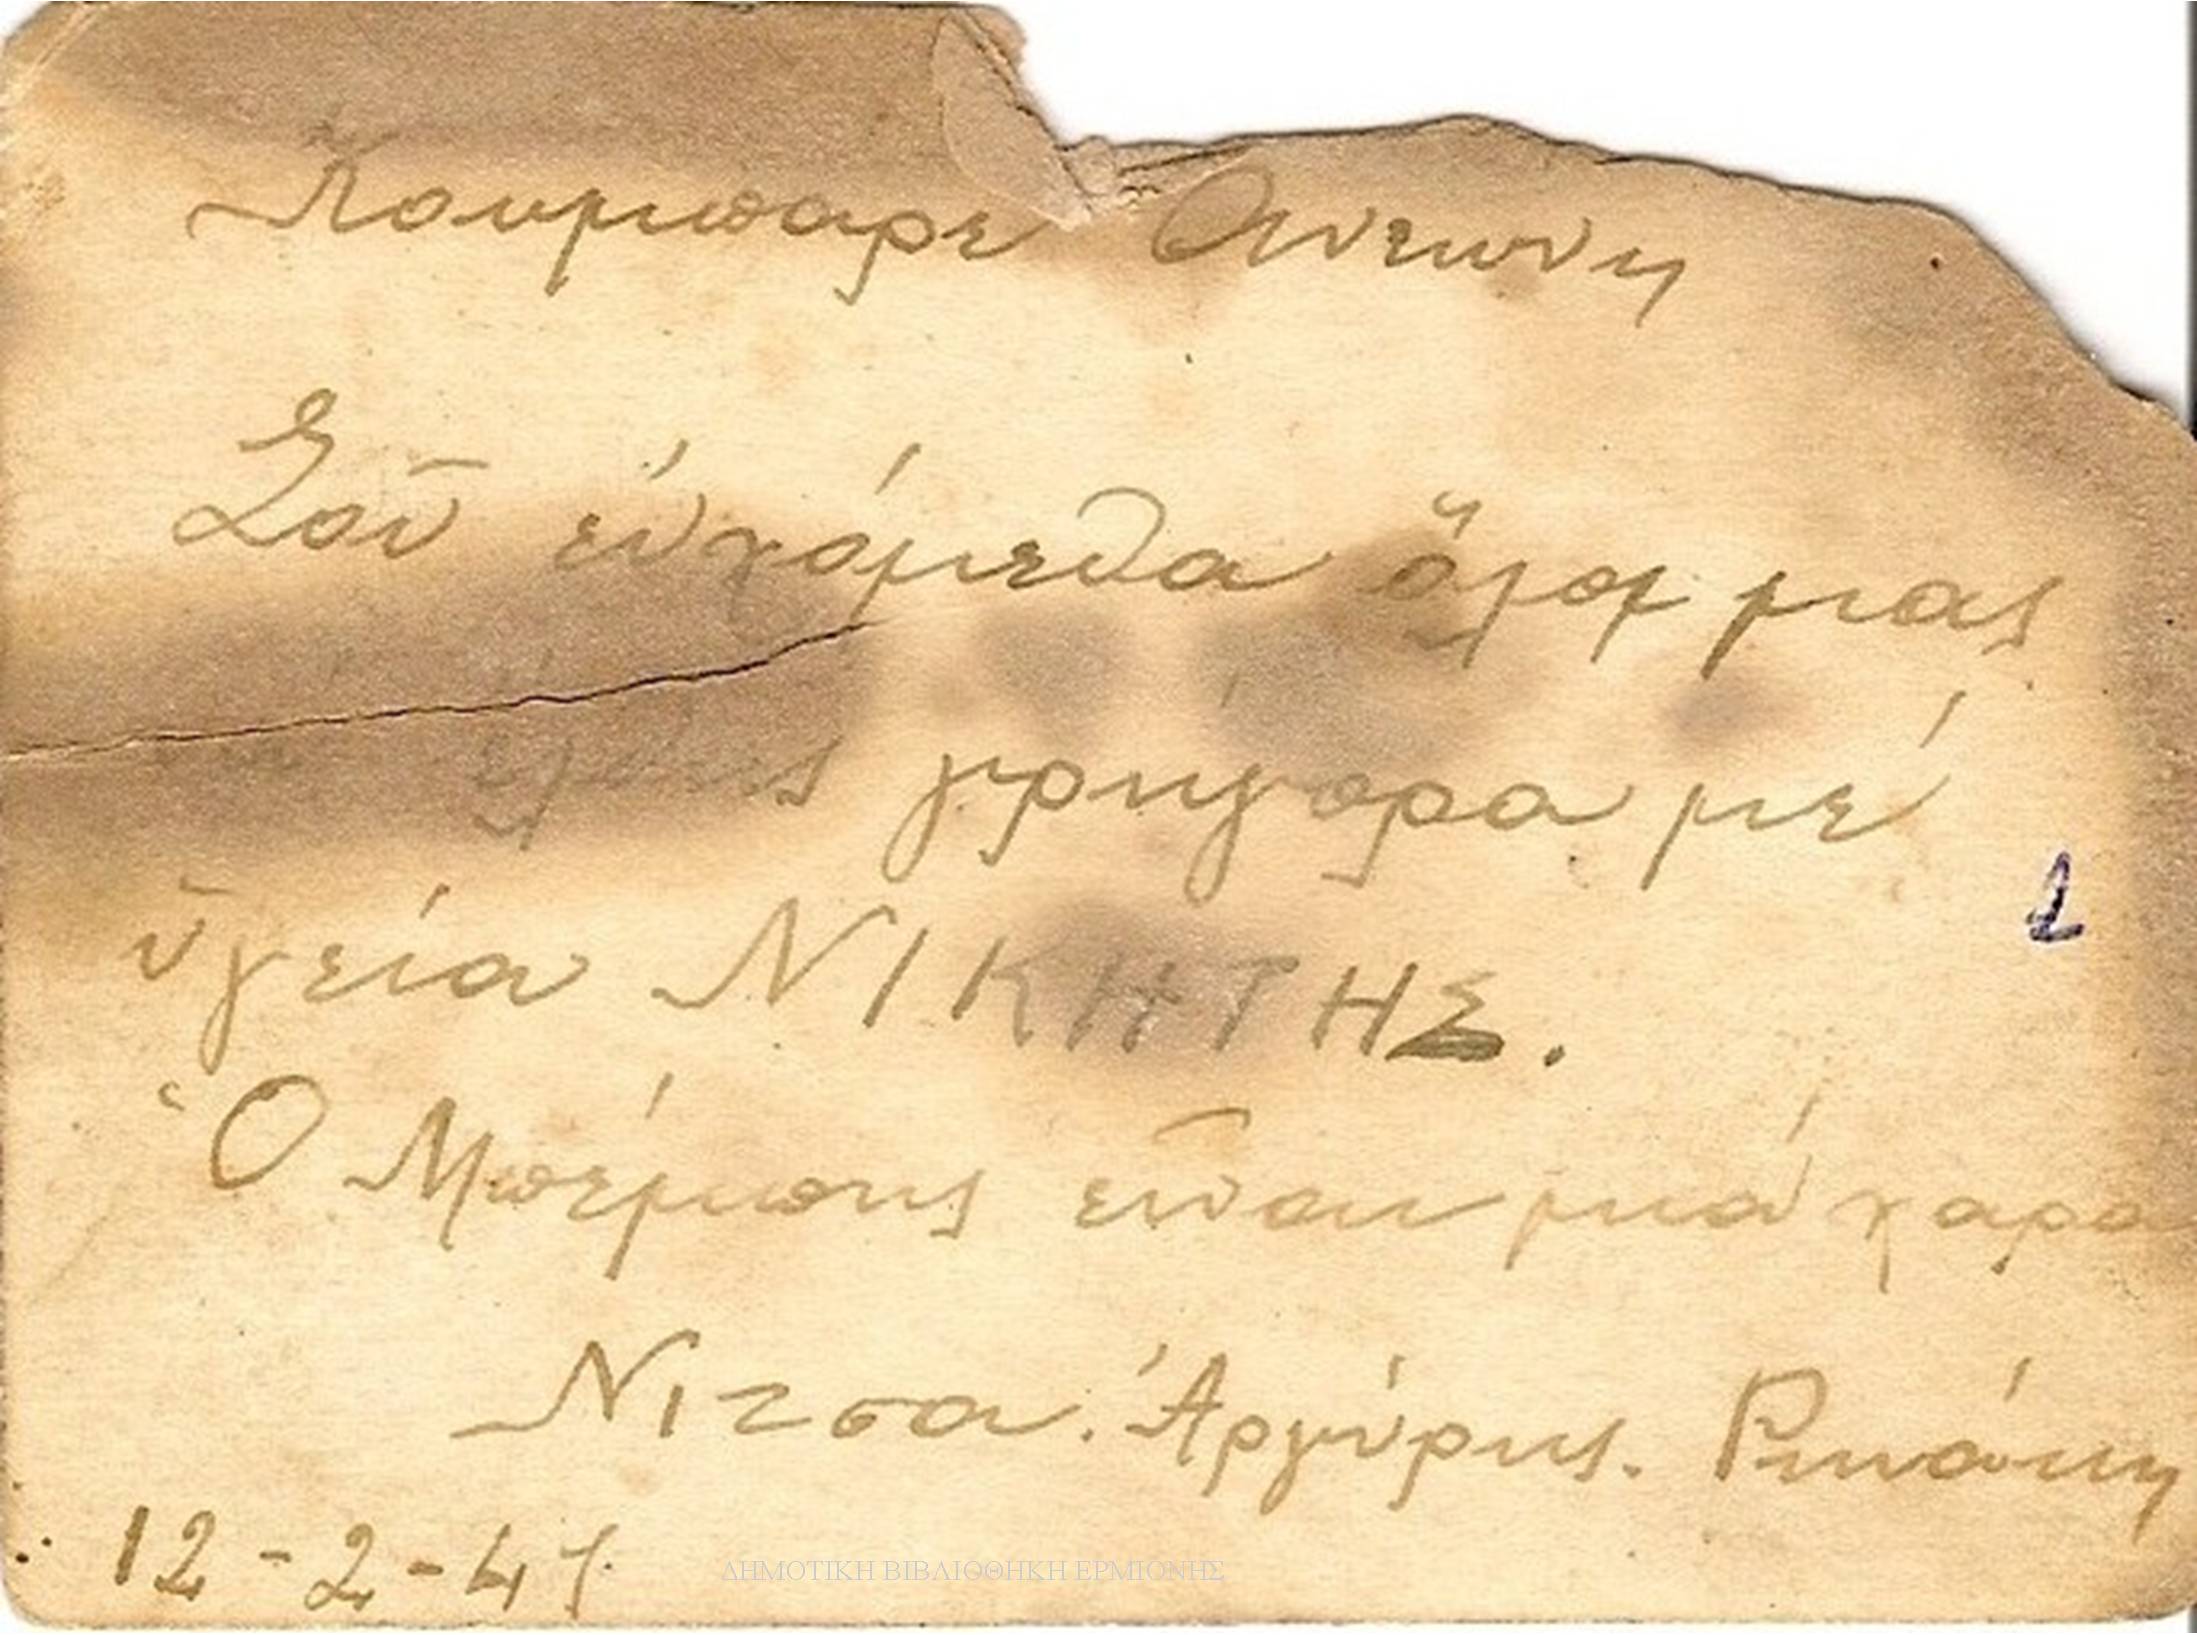 Κουμπαρε
Σοῦ εὐχόμεθα ὅλοι μας
γρηγορα μέ
ὑγεία ΝΙΚΗΤΗΣ.
Ὁ Μπέμπης εἶναι μιά χαρα
Νιτσα. Ἀργύρης. Ρικάκη
12-2-41
2
ΔΗΜΟΤΙΚΗ ΒΙΒΛΙΟΘΗΚΗ ΕΡΜΙΟΝΗΣ